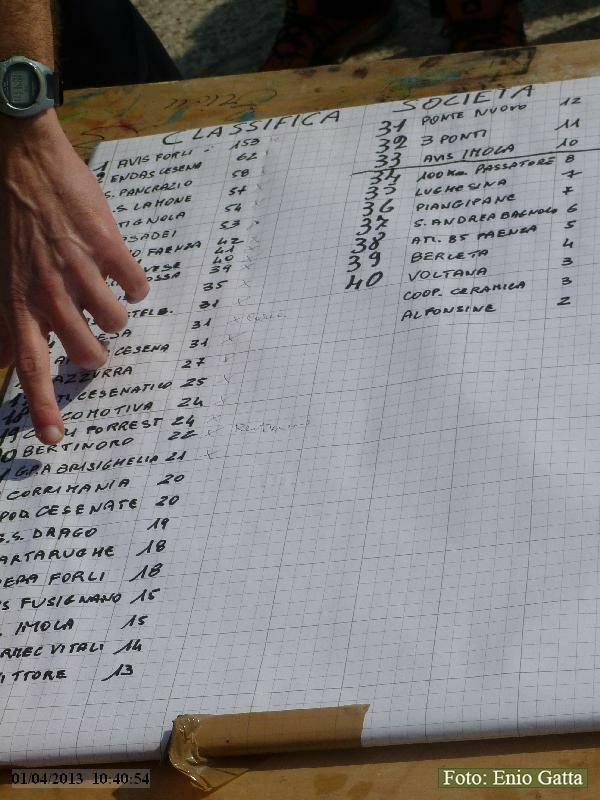 CLASSIFICA SOCIETÀ
1 AVIS FORLI 153
2 ENDAS CESENA 62
S. PANCRAZIO 58
S LAMONE 57
TIGNOLA 54
SADEI 53
FAENZA 42
41
VESE 40
OSSA 39
35
STELB. 31
SA 31
CESENA 31
AZZURRA 27
CESENATICO 25
COMOTIVA 24
19 FORREST 24
BERTINORO 22
G.P.A BRISIGHELLA 21
CORRIMANIA 20
POD CESENATE 20
G.S. DRAGO 19
ARTARUGHE 18
PERA FORLI 18
S FUSIGNANO 15
. IMOLA 15
VITALI 14
ITTORE 13
31 PONTE NUOVO 12
32 3 PONTI 11
33 AVIS IMOLA 10
34 100 KM PASSATORE 8
35 LUGHESINA 7
36 PIANGIPANE 7
37 S. ANDREA BAGNOLO 6
38 ATL. 85 FAENZA 5
39 BERLETA 4
40 VOLTANA 3
COOP. CERAMICA 3
ALFONSINE 2
01/04/2013 10:40:54
Foto: Enio Gatta